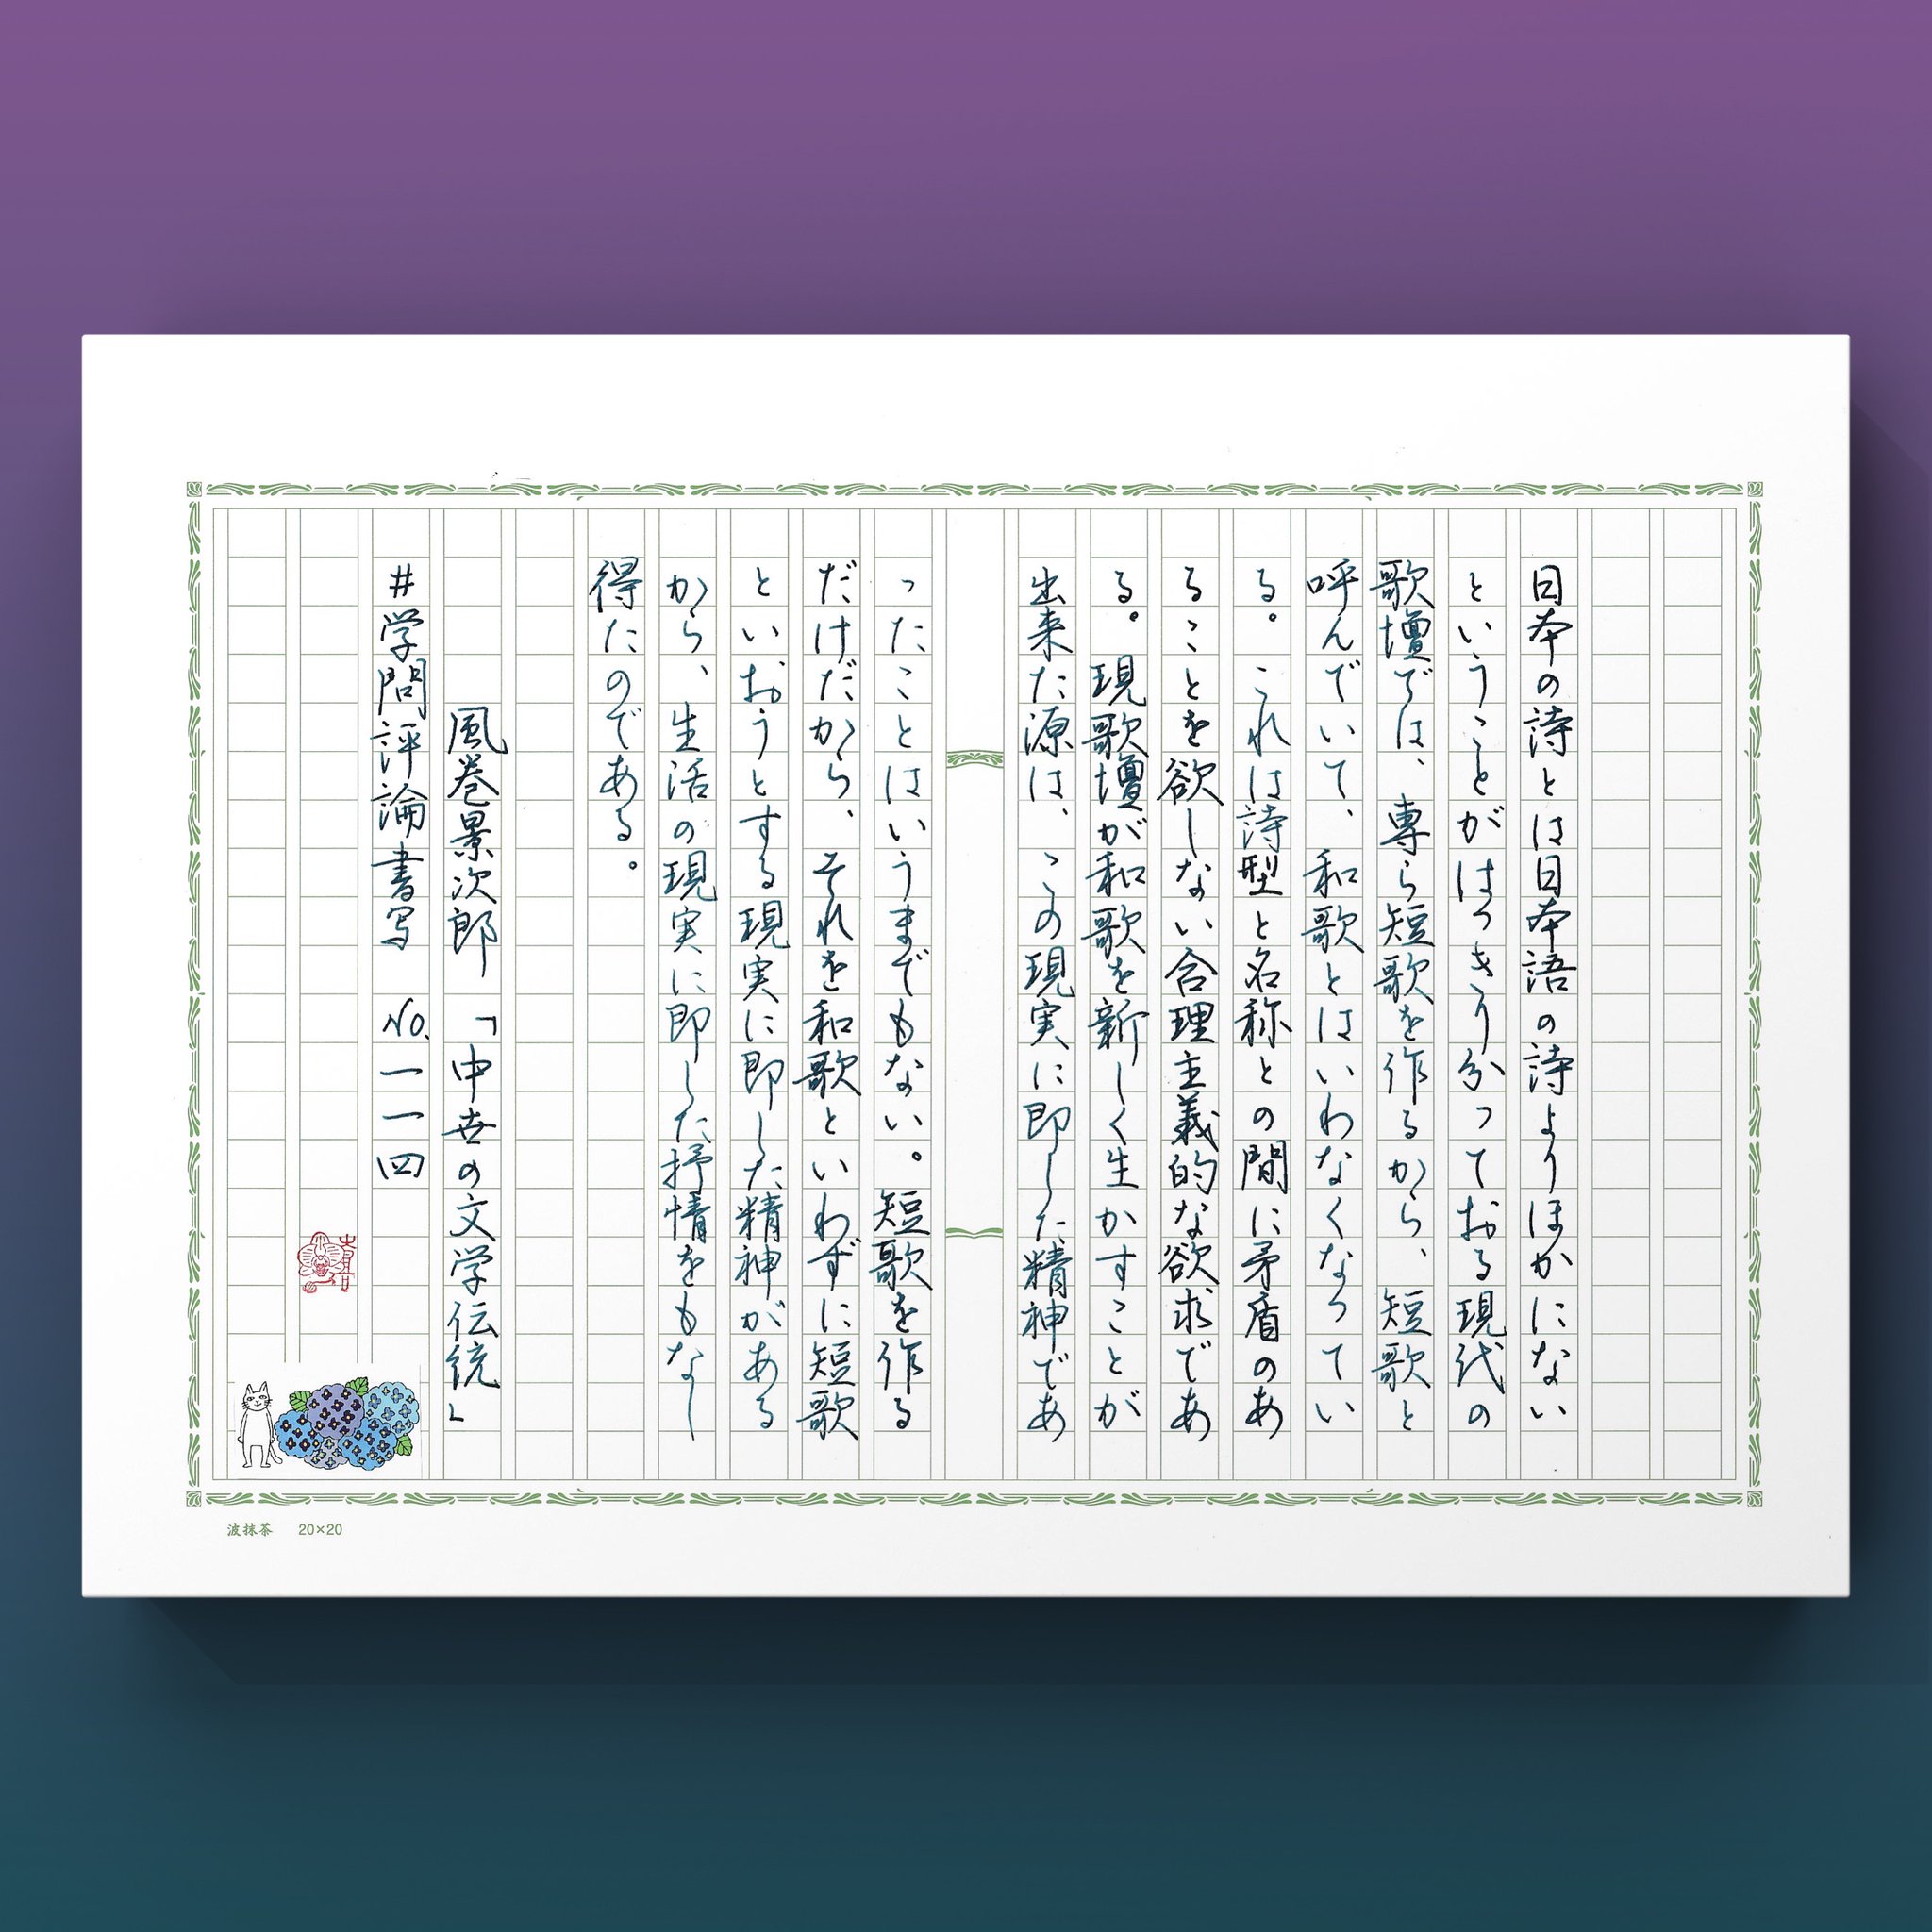 日本の詩とは日本語の詩よりほかにない
ということがはっきり分っておる現代の
歌壇では、専ら短歌を作るから、短歌と
呼んでいて、和歌とはいわなくなってい
る。これは詩型と名称との間に矛盾のあ
ることを欲しない合理主義的な欲求であ
る。現歌壇が和歌を新しく生かすことが
出来た源は、この現実に即した精神であ
ったことはいうまでもない。短歌を作る
だけだから、それを和歌といわずに短歌
といおうとする現実に即した精神がある
から、生活の現実に即した抒情をもなし
得たのである。
風巻景次郎「中世の文学伝統」
#学問評論書写 No.一一一四
波抹茶 20×20